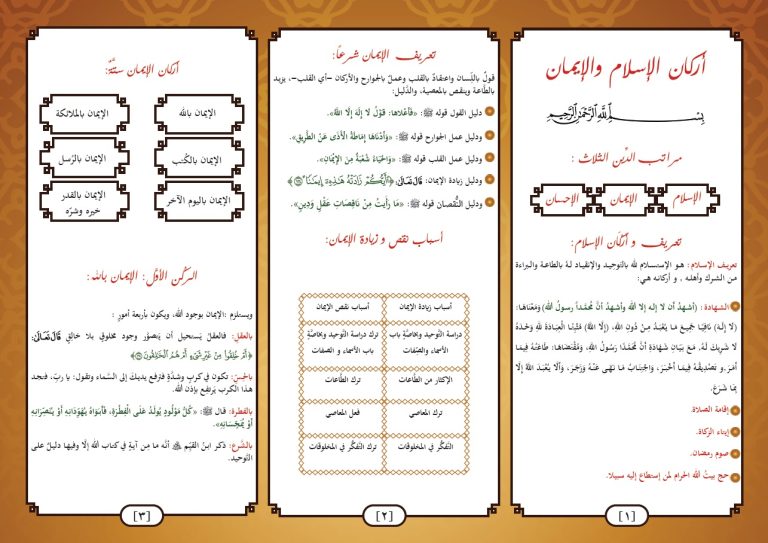 أركان الإسلام والإيمان
بِسْمِ اللَّهِ الرَّحْمَنِ الرَّحِيمِ
مراتب الدِّين الثلاث :
الإسلام
الإيمان
الإحسان
تعريف و أركان الإسلام:
تعريف الإسلام : هو الإستسلام لله بالتوحيد والإنقياد له بالطاعة والبراءة
من الشرك وأهله . و أركانه هي:
الشهادة : (أشهدُ أن لا إله إلا الله وأشهدُ أنَّ مُحمَّداً رسولُ الله) وَمَعْنَاهَا:
(لا إلَهَ) نَافِيًا جَمِيعَ مَا يُعْبَدُ مِنْ دُونِ اللهِ، (إلَّا اللهُ) مُثْبِتًا العِبَادَةَ لله وَحْدَهُ
لا شَرِيكَ لَهُ، مَعَ بيَان شَهَادَةِ أَنَّ مُحَمَّدًا رَسُولُ اللهِ، وَمُقْتَضَاهَا: طَاعَتُهُ فِيمَا
أَمَرَ،و تَصْدِيقُهُ فِيمَا أَخْبَرَ، وَاجْتِنَابُ مَا نَهَى عَنْهُ وَزَجَرَ، وَأَلَّا يُعْبَدَ اللهُ إلَّا
بِمَا شَرَعَ.
إقامة الصلاة.
إيتاء الزكاة.
صوم رمضان.
حج بيتُ الله الحرام لمن إستطاع إليه سبيلا.
[١]
تعريف الإيمان شرعاً:
قولٌ باللّسان واعتقادٌ بالقلب وعملٌ بالجوارح والأركان –أي القلب–، يزيد
بالطّاعة وينقص بالمعصية، والدّليل:
دليل القول قوله ﷺ: «فَأَعْلاها: قَوْلُ لا إِلَهَ إِلَّا اللَّهُ».
ودليل عمل الجوارح قوله ﷺ: «وَأَدْنَاهَا إِمَاطَةُ الْأَذَى عَنْ الطَّرِيقِ».
ودليل عمل القلب قوله ﷺ: «وَالْحَيَاءُ شُعْبَةٌ مِنْ الإِيمَانِ».
ودليل زيادة الإيمان: قَالَ تَعَالَى: ﴿أَيُّكُمْ زَادَتْهُ هَٰذِهِ إِيمَٰنًا﴾
ودليل النُّقصان قوله ﷺ: «مَا رَأَيْتُ مِنْ نَاقِصَاتِ عَقْلٍ وَدِينٍ».
أسباب نقص و زيادة الإيمان:
أسباب زيادة الإيمان
أسباب نقص الإيمان
دراسة التَّوحيد وبخاصَّةٍ باب
الأسماء والصِّفات
ترك دراسة التَّوحيد وبخاصَّةٍ
باب الأسماء و الصِّفات
الإكثار من الطّاعات
ترك الطّاعات
ترك المعاصي
فعل المعاصي
التّفكُّر في المخلوقات
ترك التّفكُّر في المخلوقات
[٢]
أركان الإيمان ستَّةٌ:
الإيمان بالله
الإيمان بالملائكة
الإيمان بالكُتب
الإيمان بالرّسل
الإيمان باليوم الآخر
الإيمان بالقدر
خيره وشرّه
الركن الأوّل: الإيمان بالله:
ويستلزم :الإيمان بوجود الله، ويكون بأربعة أمورٍ :
بالعقل: فالعقلُ يَستحيل أن يَتصوَّر وجود مخلوقٍ بلا خالقٍ قَالَ تَعَالَى:
﴿أَمْ خُلِقُوا مِنْ غَيْرِ شَيْءٍ أَمْ هُمُ الْخَالِقُونَ﴾
بالحِسِّ: تكون في كربٍ وشدَّةٍ فترفع يديك إلى السَّماء وتقول: يا ربّ، فتجد
هذا الكرب يَرتفِع بإذن الله.
بالفِطرة: قال ﷺ: «كُلُّ مَوْلُودٍ يُولَدُ عَلَى الْفِطْرَةِ، فَأَبَوَاهُ يُهَوِّدَانِهِ أَوْ يُنَصِّرَانِهِ
أَوْ يُمَجِّسَانِهِ».
بالشَّرع: ذكر ابنُ القيِّم أنّه ما مِن آيةٍ في كتاب الله إلَّا وفيها دليلٌ على
التّوحيد.
[٣]